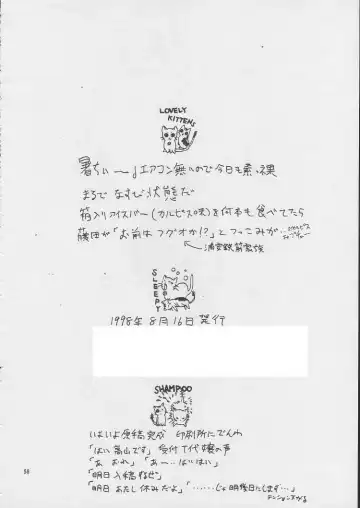 LOVELY
KITTENS
暑ちぃ〜。エアコン無いので今日も素っ裸
まるでなすび状態だ
箱入りアイスバー(カルピスの味)を何本も食べてたら
藤田が「お前はフグオか!?」とつっこみが…
←浦安鉄筋家族
SLEEPY
1998年8月16日発行
SHAMPOO
いよいよ原稿完成 印刷所にでんわ
「はい 嵩山です」受付 T代嬢の声
「あ おれ」「あー…はいはい」
「明日 入稿なぜ」
「明日 あたし休みだよ」「……じゃ明後日にします…」
テンションさがる
58